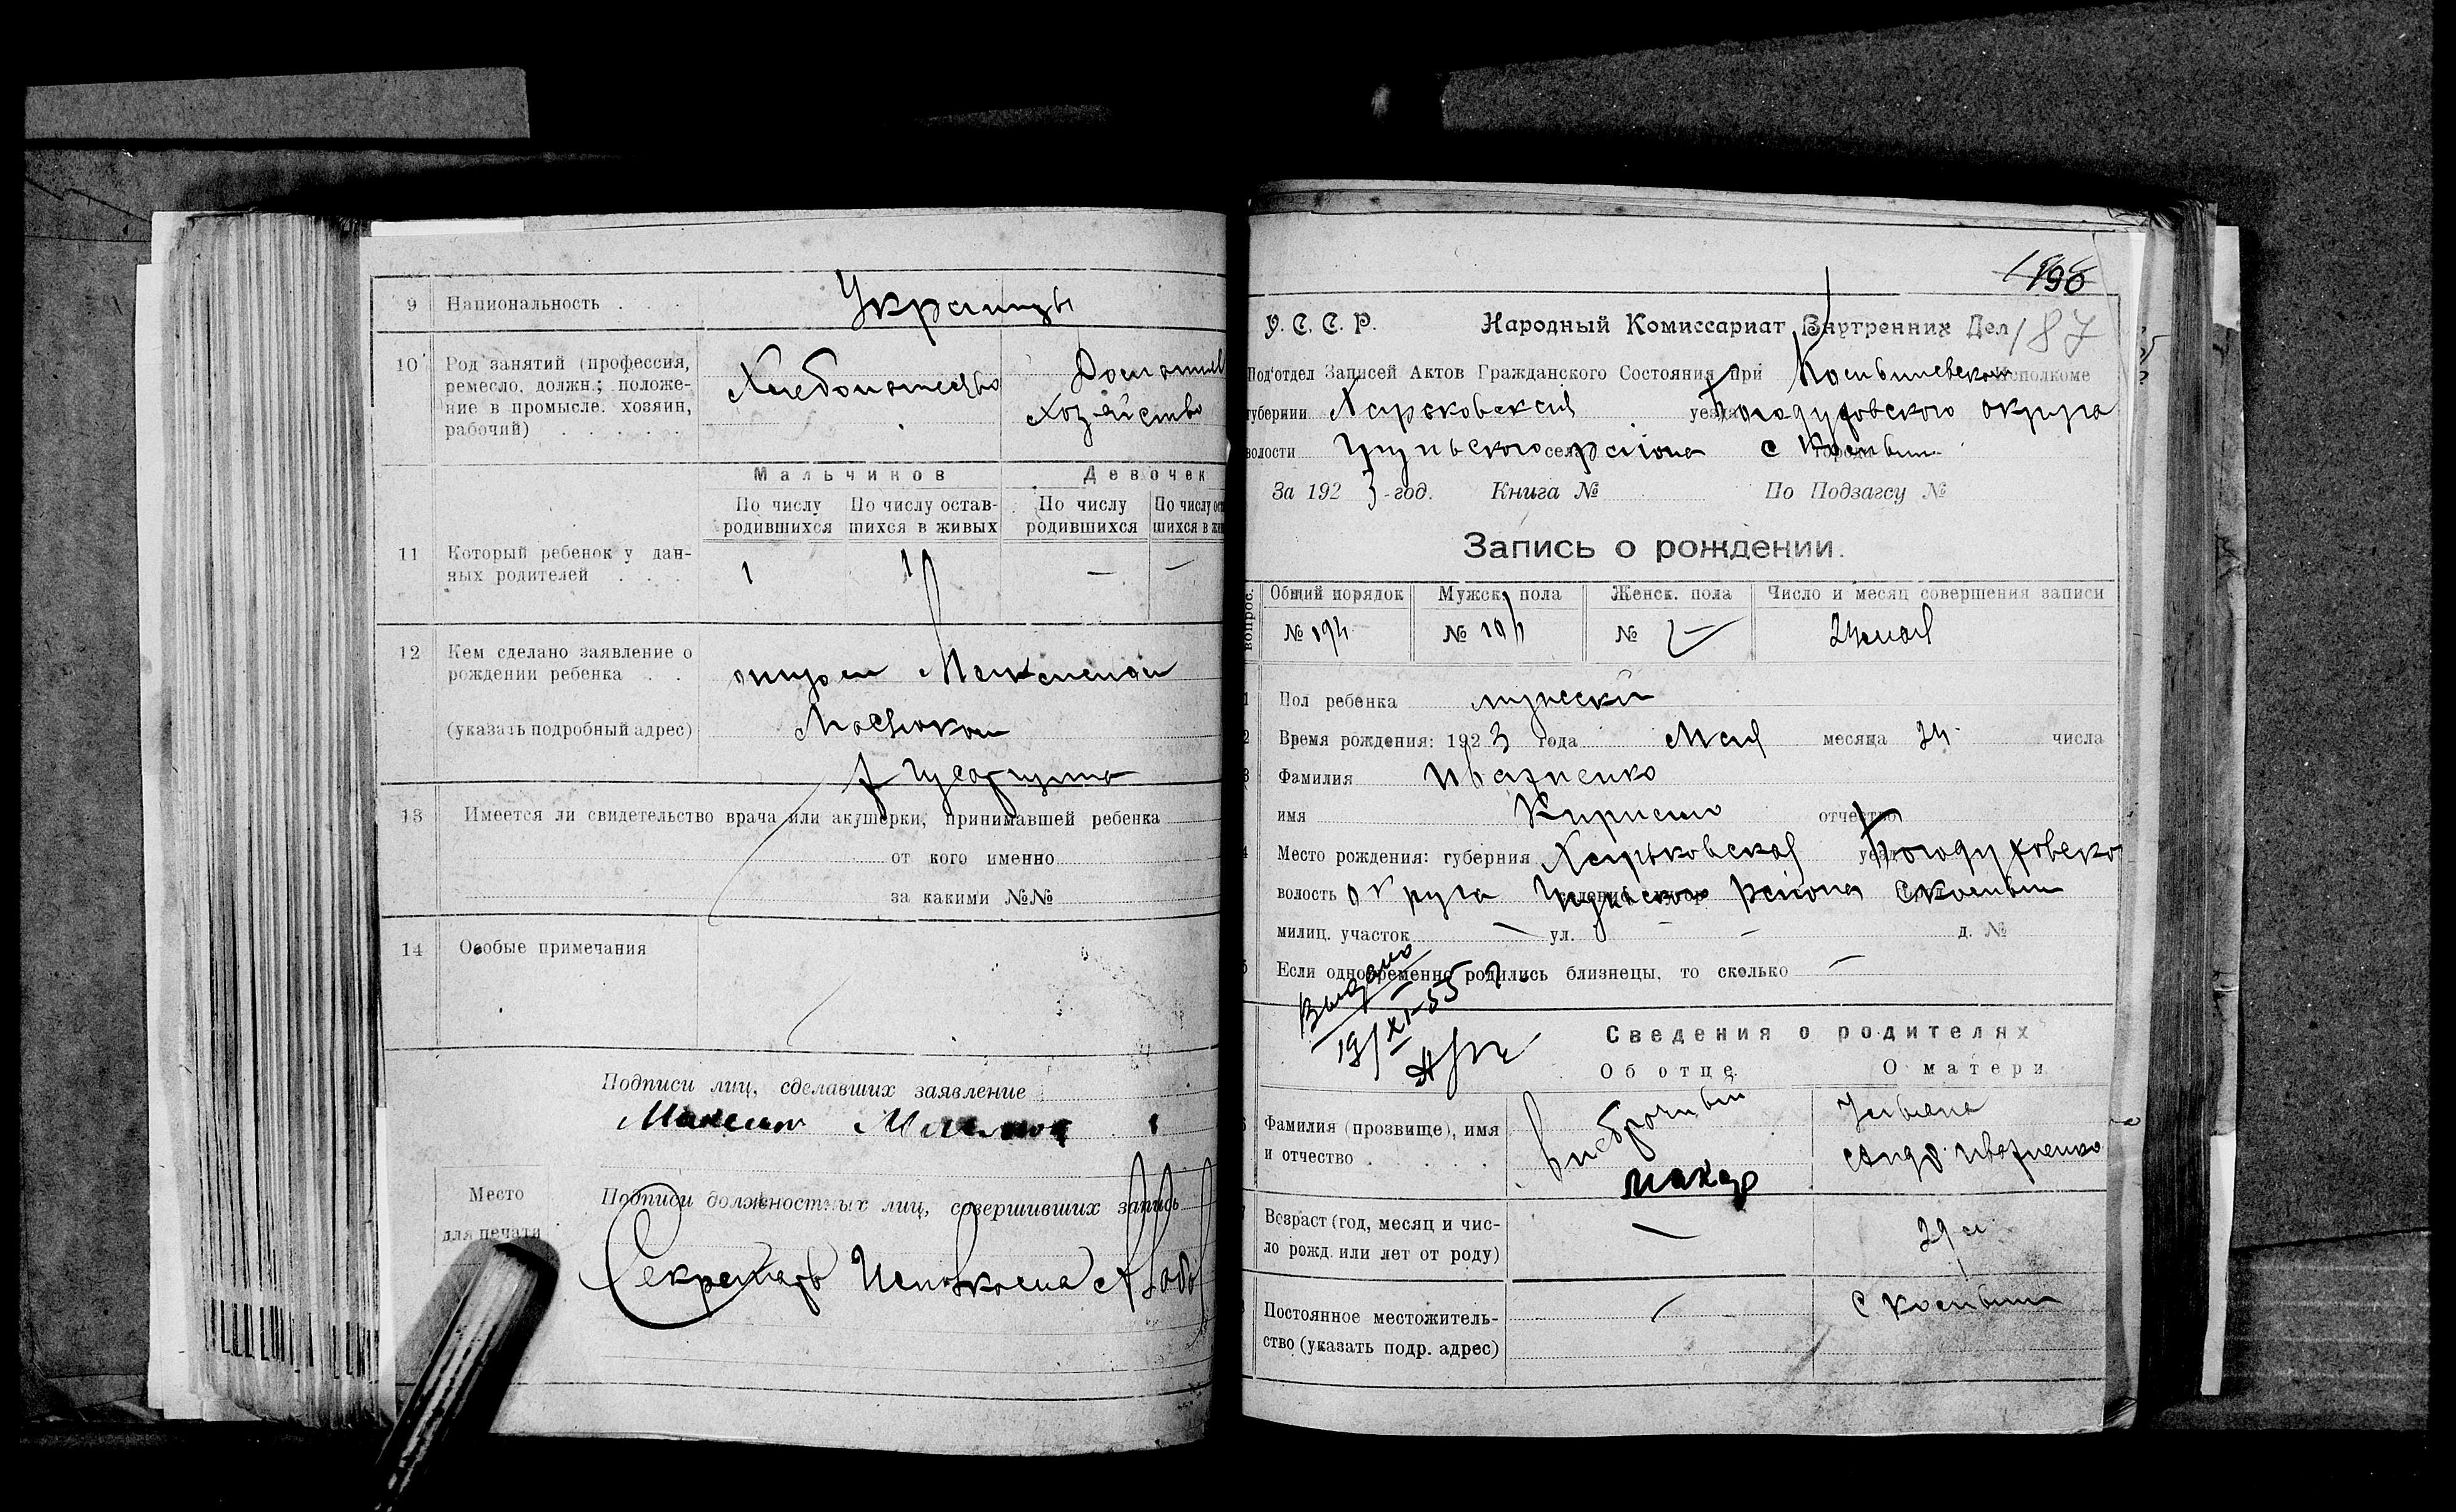 9 Национальность . . . Украинцы
10 Род занятий (профессия, ремесло, должн.; положе-
ние в промысле: хозяин,
рабочий) . . . . .
Хлебопашество
Домашнее
Хозяйство
Мальчиков Девочек
По числу родившихся По числу остав-
шихся в живых По числу родившихся По числу
11 Который ребенок у дан-
ных родителей . . .
1 1 — —
12 Кем сделано заявление о
рождении ребенка . .
(указать подробный адрес)
отцом
13 Имеется ли свидетельство врача или акушерки, принимавшей ребенка
от кого именно
за какими №№
14 Особые примечания
Подписи лиц, сделавших заявление
Максим
Место
для печати
Подписи должностных лиц, совершивших запись
Секретарь Исполкома
196
187
У. С. С. Р. Народный Комиссариат Внутренних Дел
Под'отдел Записей Актов Гражданского Состояния при исполкоме
губернии Харьковская уезда Богодуховского округа
волости села района с города
За 192 3 -год. Книга № По Подзагсу №
Запись о рождении.
вопрос. Общий порядок Мужск. пола Женск. пола Число и месяц совершения записи
№ 194 № № — 24 мая
1 Пол ребенка мужеский
2 Время рождения: 192 3 года Мая месяца 24 числа
3 Фамилия Ивахненко
имя Кирилло отчество
4 Место рождения: губерния Харьковская уезд Богодуховского
волость округа района
милиц. участок — ул. — — д. №
5 Если одновременно родились близнецы, то сколько —
Выдано
19/XI-55 г.
Сведения о родителях
Об отце. О матери
6 Фамилия (прозвище), имя
и отчество . . . .
внебрачный
Макар
Татьяна
Анд. Ивахненко
7 Возраст (год, месяц и чис-
ло рожд. или лет от роду)
— 29 л.
8 Постоянное местожитель-
ство (указать подр. адрес)
—